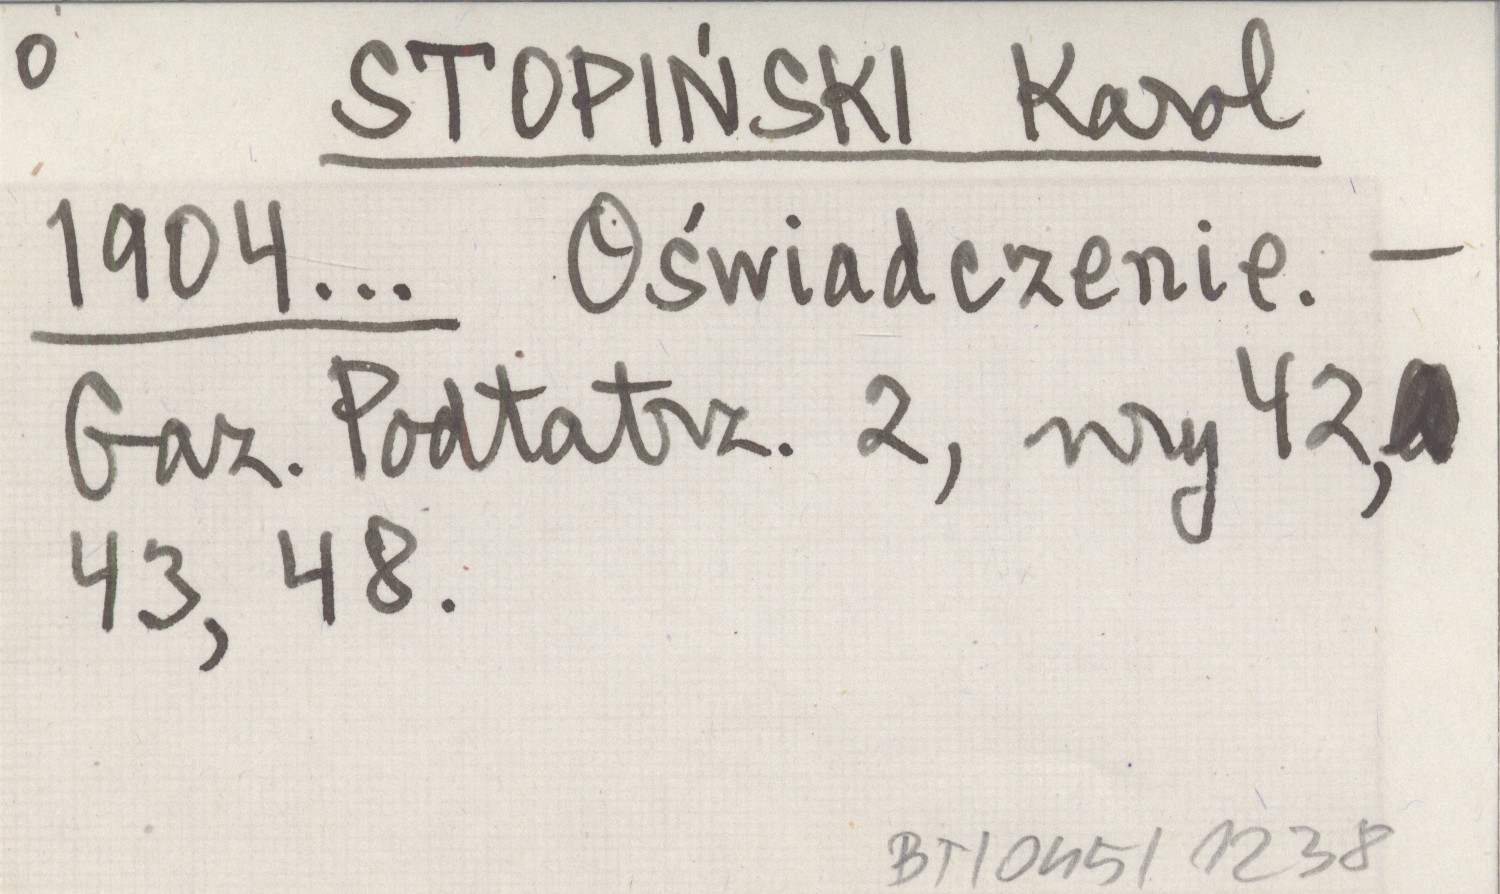 o
STOPIŃSKI Karol
1904... Oświadczenie. —
Gaz. Podtatrz. 2, nry 42,
43, 48.
BT/045/1238